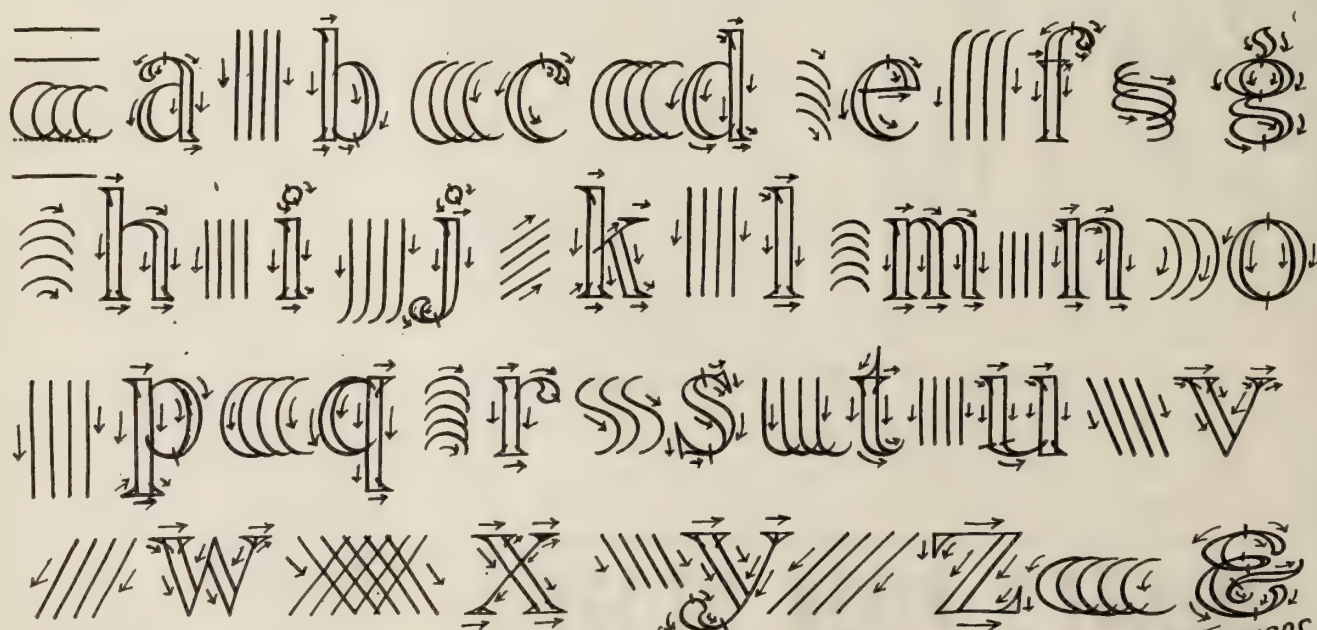 a b c d e f g
h i j k l m n o
p q r s t u v
w x y z &